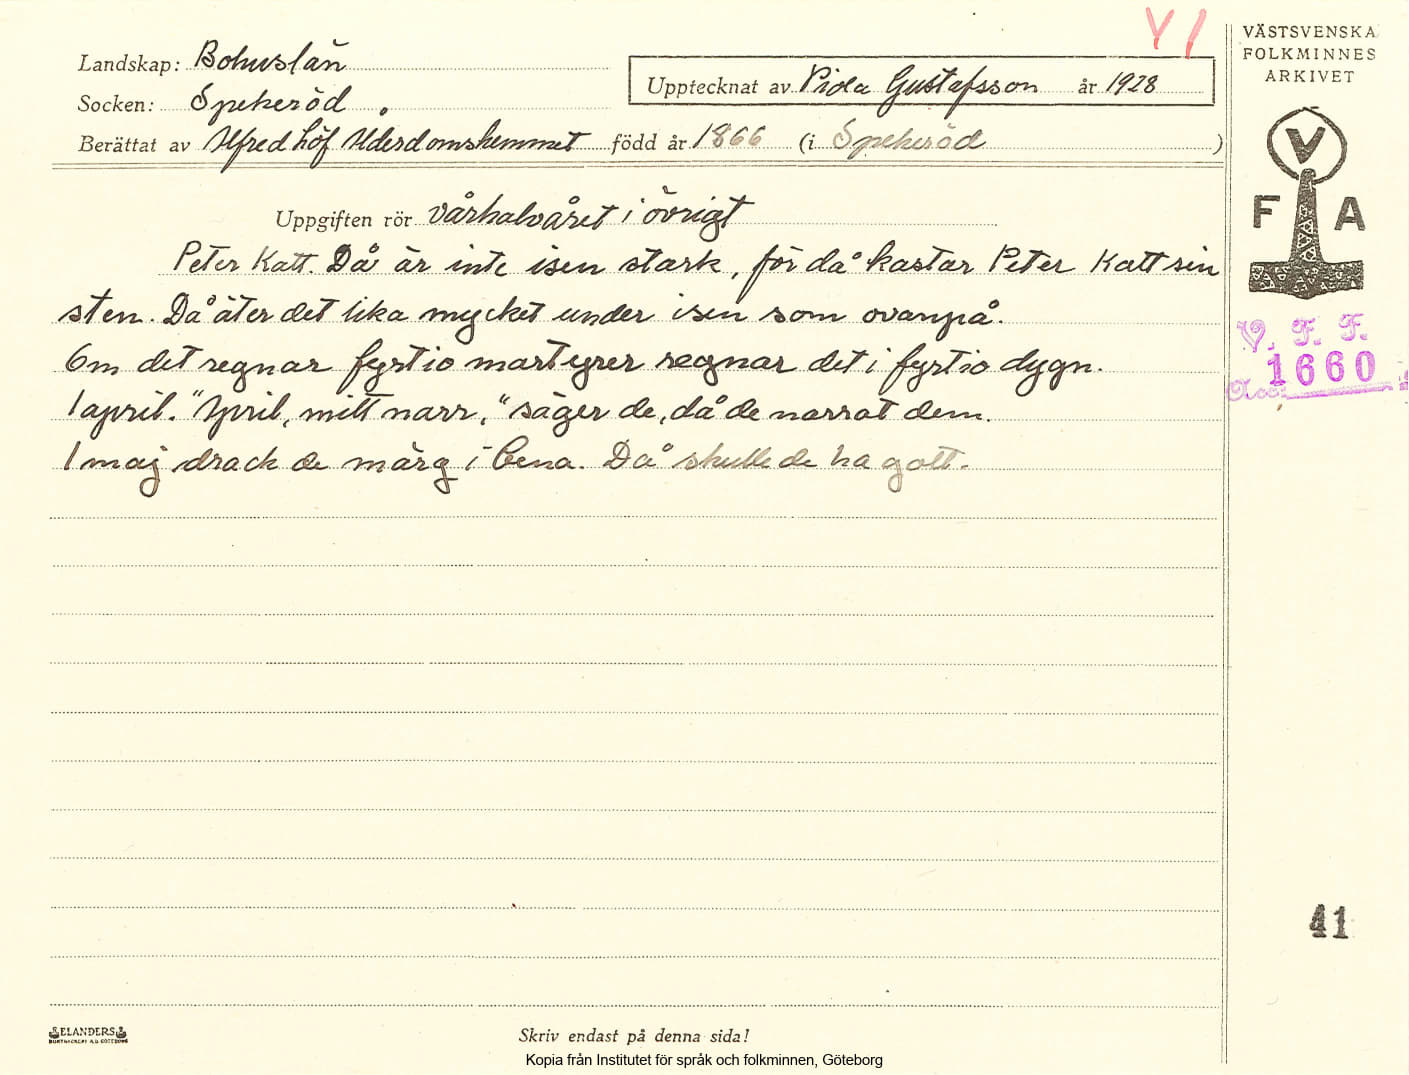 VI
VÄSTSVENSKA
FOLKMINNES
ARKIVET
Landskap: Bohuslän
Upptecknat av Viola Gustafsson år 1928
Socken: Spekeröd
Berättat av Alfred Löf Ålderdomshemmet född år 1866 (i Spekeröd)
V
F A
Uppgiften rör vårhalvåret i övrigt
Peter Katt. Då är inte isen stark, för då kastar Peter Katt sin
sten. Då äter det lika mycket under isen som ovanpå.
Om det regnar fyrtio martyrer regnar det i fyrtio dygn.
1 april. "April, mitt narr," säger de, då de narrat dem.
1 maj drack de märg i bena. Då skulle de ha gott.
V. F. F.
1660
Acc.
41
ELANDERS
Skriv endast på denna sida!
Kopia från Institutet för språk och folkminnen, Göteborg